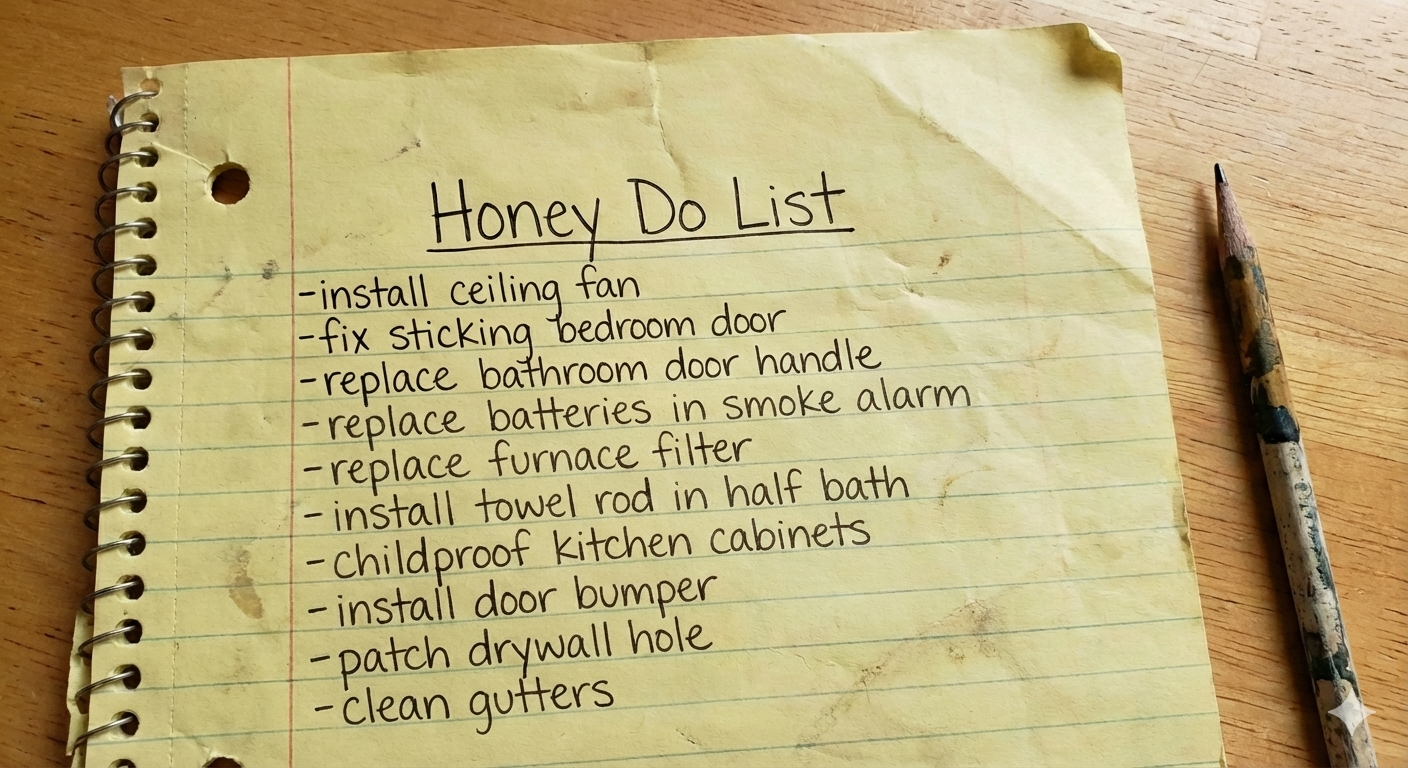 Honey Do List
-install ceiling fan
-fix sticking bedroom door
-replace bathroom door handle
-replace batteries in smoke alarm
-replace furnace filter
-install towel rod in half bath
-childproof kitchen cabinets
-install door bumper
-patch drywall hole
-clean gutters